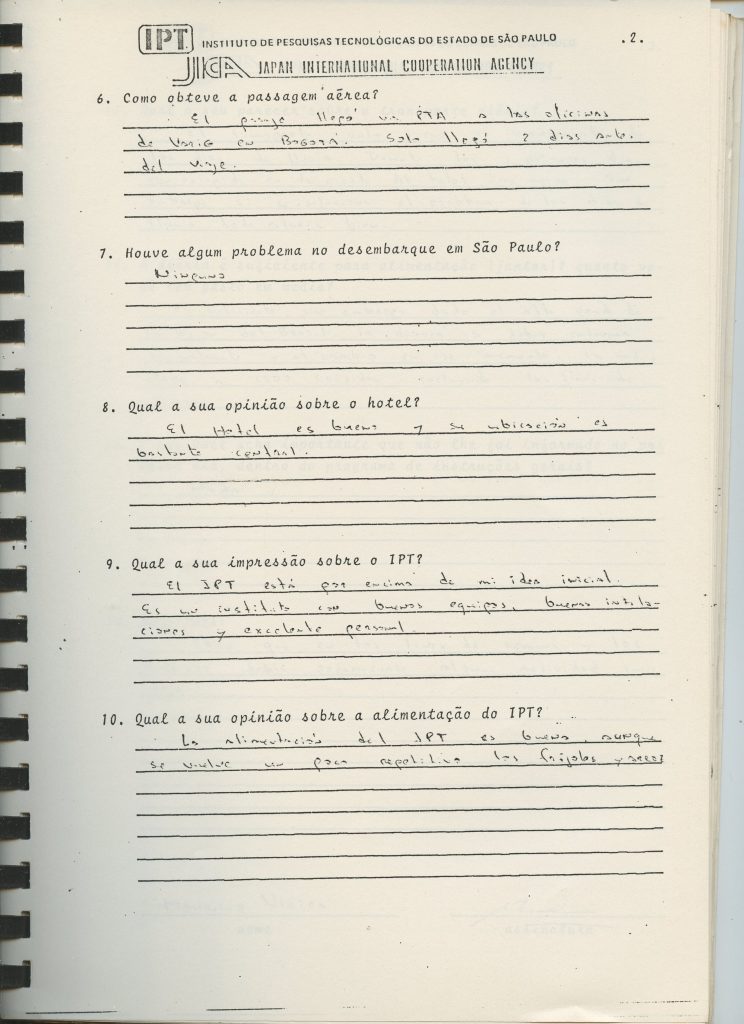 IPT INSTITUTO DE PESQUISAS TECNOLÓGICAS DO ESTADO DE SÃO PAULO .2.
JICA JAPAN INTERNATIONAL COOPERATION AGENCY
6. Como obteve a passagem aérea?
El pasaje llegó un PTA a las oficinas
de VARIG en Bogotá. Solo llegó 2 dias ante.
del viaje.
7. Houve algum problema no desembarque em São Paulo?
Ninguno
8. Qual a sua opinião sobre o hotel?
El Hotel es bueno y su ubicación es
bastante central.
9. Qual a sua impressão sobre o IPT?
El IPT está por encima de mi idea inicial.
Es un instituto con buenos equipos, buenas instala-
ciones y excelente personal.
10. Qual a sua opinião sobre a alimentação do IPT?
La alimentación del IPT es buena, aunque
se vuelve un poco repetitivo los fríjoles y arroz